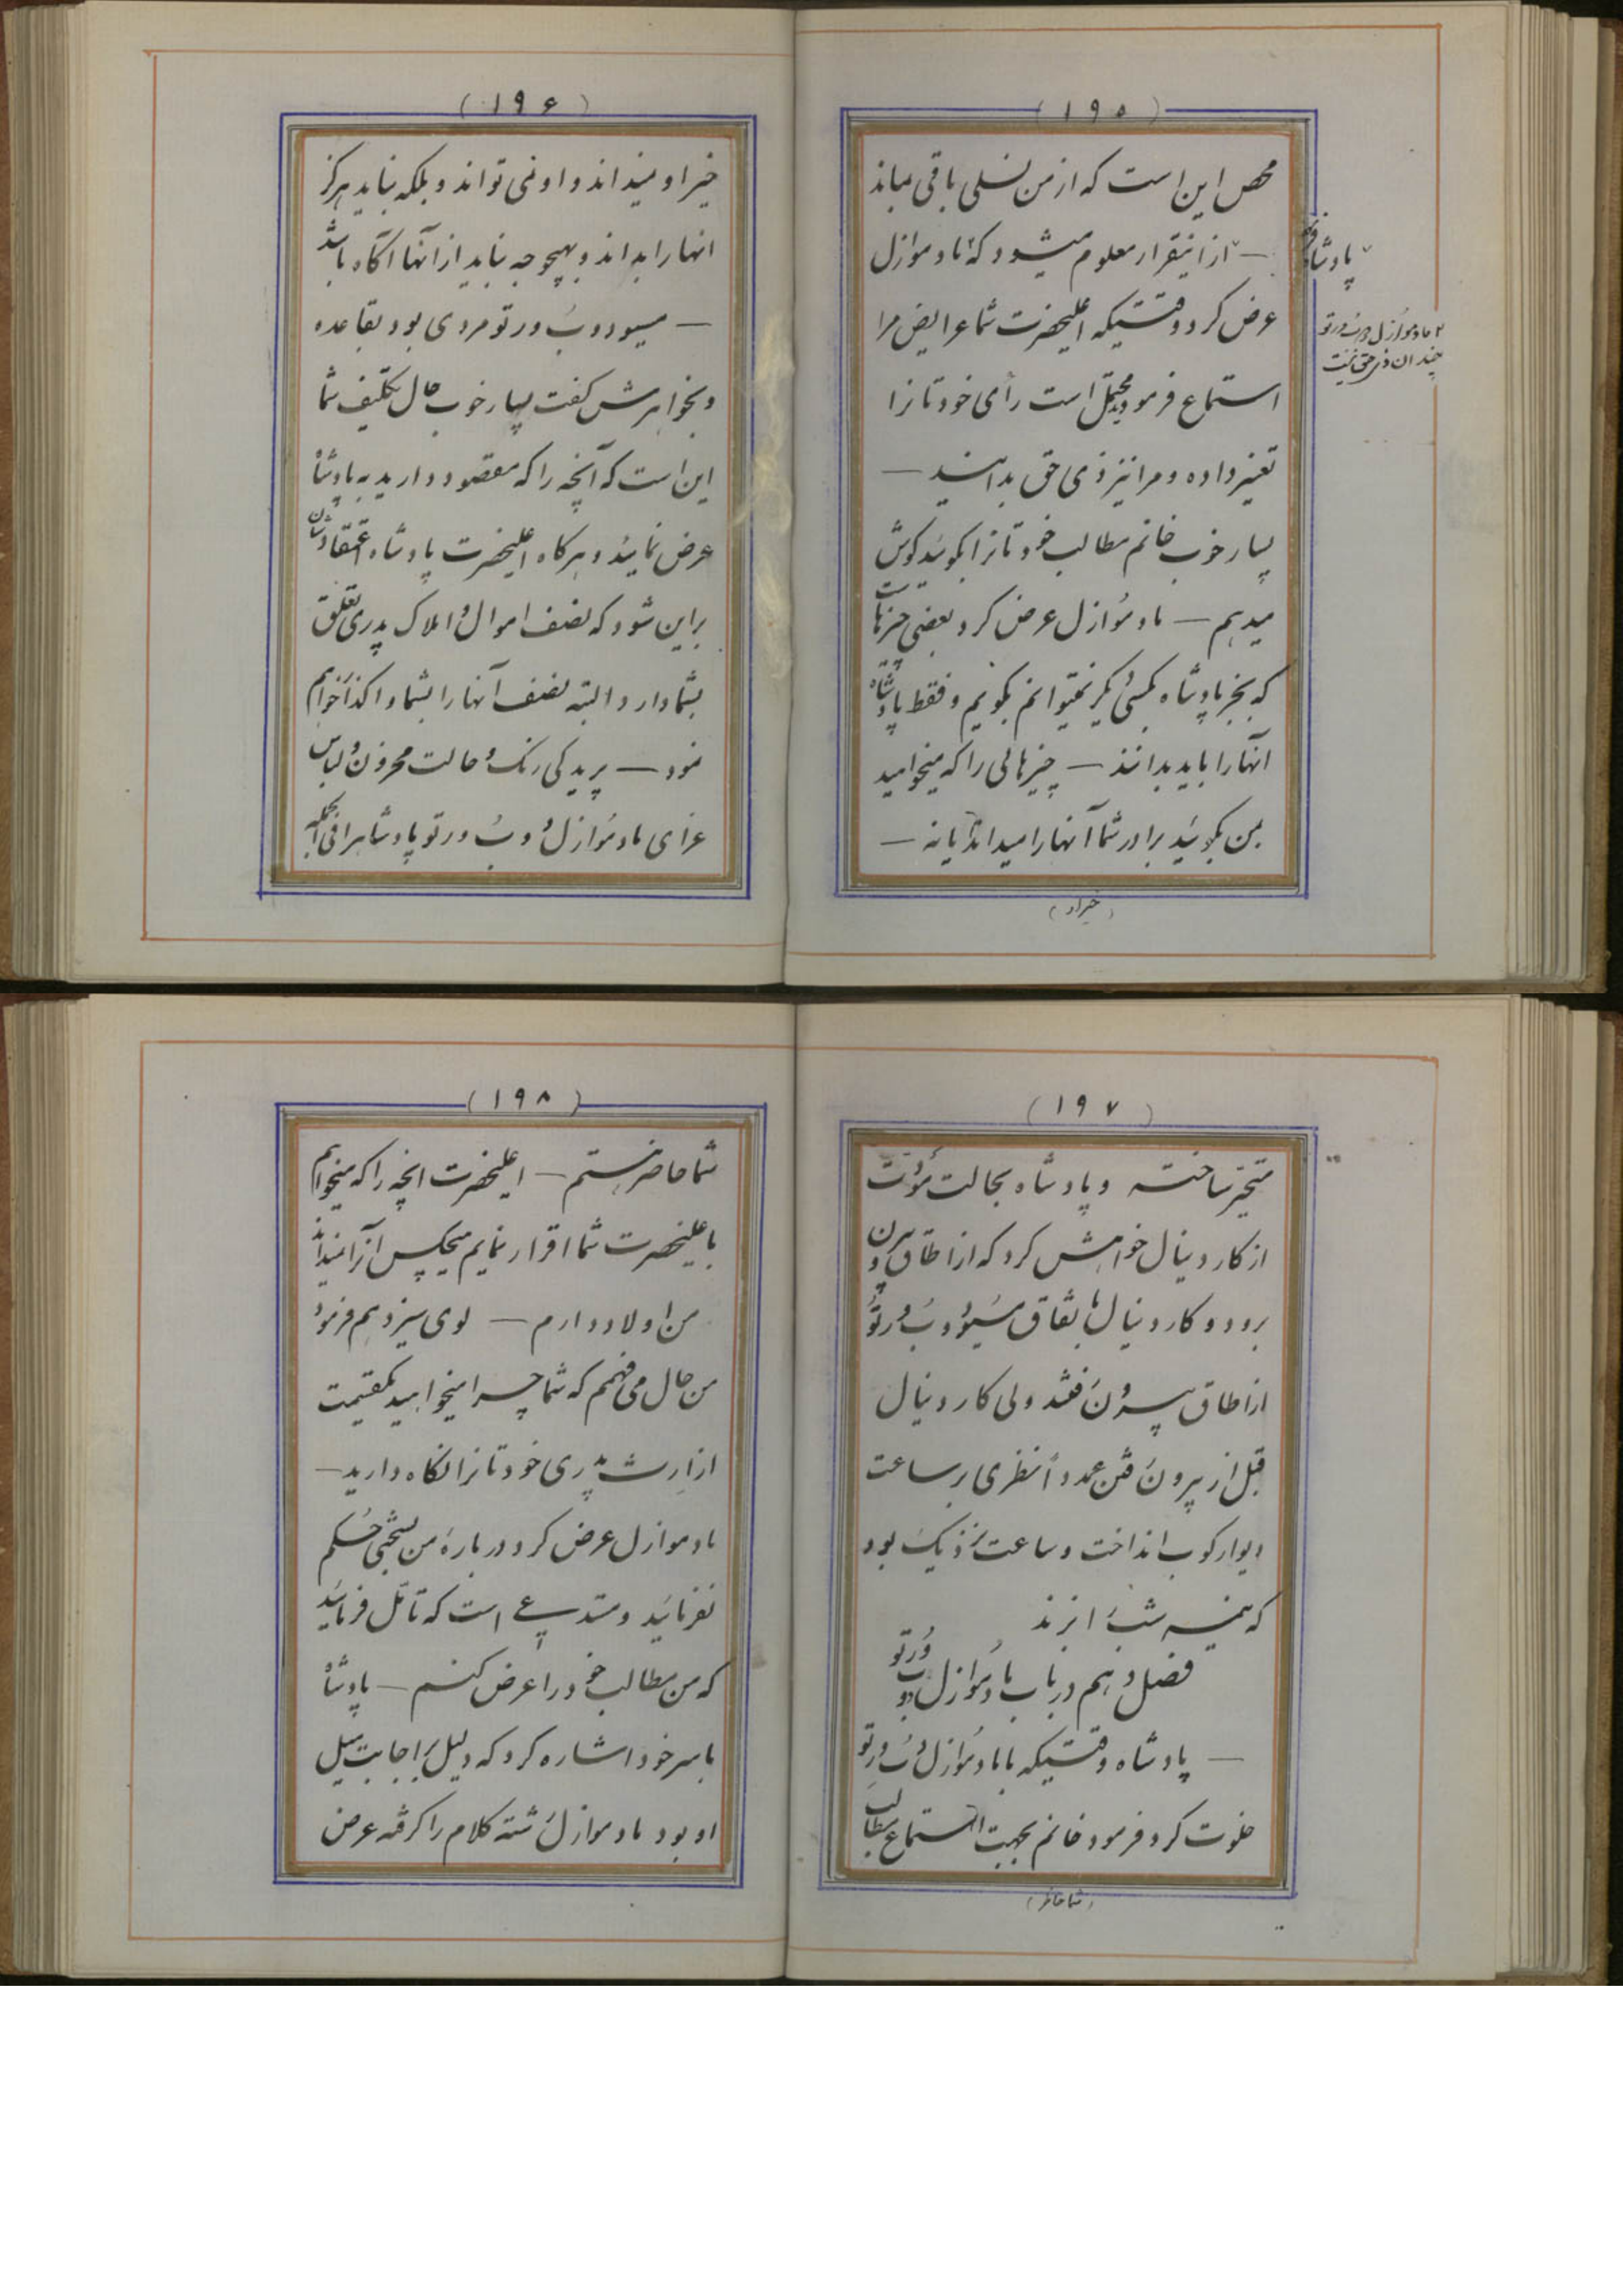 (۱۹۵)
محض این است که از من نسلی باقی بماند
— از اینقرار معلوم میشود که مادموازل
پادشاه
۲ مادموازل دوب ورتو
چندان ذی حق نیست
عرض کرد وقتیکه اعلیحضرت شما عرایض مرا
استماع فرمودید محتمل است رأی خودتانرا
تغییر داده و مرا نیز ذی حق بدانید —
بسیار خوب خانم مطالب خودتانرا بگوئید گوش
میدهم — مادموازل عرض کرد بعضی چیزها است
که بجز پادشاه بکسی دیگر نمیتوانم بگویم و فقط پادشاه
آنها را باید بدانند — چیزهائی را که میخواهید
بمن بگوئید برادر شما آنها را میداند یا نه —
(خیر او)
(۱۹۶)
خیر او نمیداند و او نمی تواند و بلکه نباید هرگز
انها را بداند و بهیچوجه نباید از آنها آگاه باشد
— مسیو دوب ورتو مردی بود بقاعده
و بخواهرش گفت بسیار خوب حال تکلیف شما
این است که آنچه را که مقصود دارید به پادشاه
عرض نمائید و هرگاه اعلیحضرت پادشاه اعتقادشان
براین شود که نصف اموال و املاک پدری تعلق
بشما دارد البته نصف آنها را بشما واگذار خواهم
نمود — پریدگی رنگ و حالت محزون و لباس
عزای مادموازل دوب ورتو پادشاه را فی الجمله
(۱۹۷)
متحیر ساخته و پادشاه بحالت
از کاردینال خواهش کرد که از اطاق بیرون
برود و کاردینال باتفاق مسیو دوب ورتو
از اطاق بیرون رفتند ولی کاردینال
قبل از بیرون رفتن عمداً نظری بر ساعت
دیوار کوب انداخت و ساعت نزدیک بود
که نیمه شب را بزند
فصل دهم در باب مادموازل دوب ورتو
— پادشاه وقتیکه با مادموازل دوب ورتو
خلوت کرد فرمود خانم بجهت استماع مطالب
(شما حاضر)
(۱۹۸)
شما حاضر هستم — اعلیحضرت انچه را که میخواهم
باعلیحضرت شما اقرار نمایم هیچکس آنرا نمیداند
من اولاد دارم — لوی سیزدهم فرمود
من حال می فهمم که شما چرا میخواهید یکقسمت
از ارث پدری خودتانرا نگاه دارید —
مادموازل عرض کرد درباره من بسختی حکم
نفرمائید و مستدعی است که تأمل فرمائید
که من مطالب خود را عرض کنم — پادشاه
با سر خود اشاره کرد که دلیل بر اجابت میل
او بود مادموازل رشته کلام را گرفته عرض